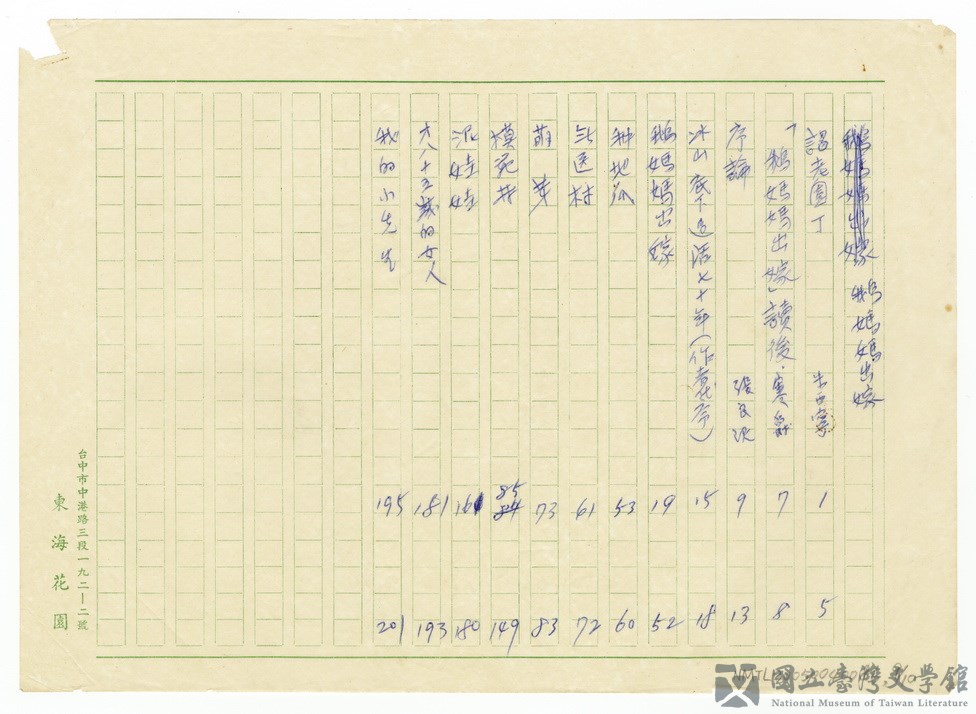 鵝媽媽出嫁 鵝媽媽出嫁
認老園丁 朱西寧 1 5
「鵝媽媽出嫁」讀後 寒爵 7 8
序論 張良澤 9 13
冰山底下過活七十年(作者代序) 15 18
鵝媽媽出嫁 19 52
種地瓜 53 60
無醫村 61 72
萌芽 73 83
模範村 84 85 149
泥娃娃 161 180
六八十五歲的女人 181 193
我的小先生 195 201
台中市中港路三段一九二—二號
東海花園
國立臺灣文學館
National Museum of Taiwan Literature